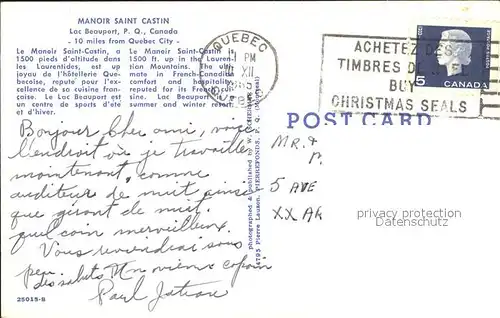 MANOIR SAINT CASTIN
Lac Beauport, P. Q., Canada
- 10 miles from Quebec City -
Le Manoir Saint-Castin, a
1500 pieds d'altitude dans
les Laurentides, est up
joyau de l'hôtellerie Que-
becoise, reputé pour l'ex-
cellence de sa cuisine fran-
çoise. Le Lac Beauport est
un centre de sports d'été
et d'hiver.
Le Manoir Saint-Castin is
1500 ft. up in the Lauren-
tian Mountains. The Ulti-
mate in French-Canadian
comfort and hospitality,
reputed for its French cui-
sine. Lac Beauport
summer and winter resort.
QUEBEC
PM
XII
ACHETEZ DES
TIMBRES DE NOEL
BUY
CHRISTMAS SEALS
5
CANADA
POST CARD
photographed & published
4795 Pierre Lauzon, PIERREFONDS, P. Q. (Montreal)
Bonjour Cher ami, voici
l'endroit où je travaille
maintenant, comme
auditeur de nuit ainsi
que gérant de nuit,
quel coin merveilleux.
Vous reviendrai sous
peu.
des saluts Un vieux copain
Paul
25015-B
MR. &
5 AVE
XX AR
privacy protection
Datenschutz